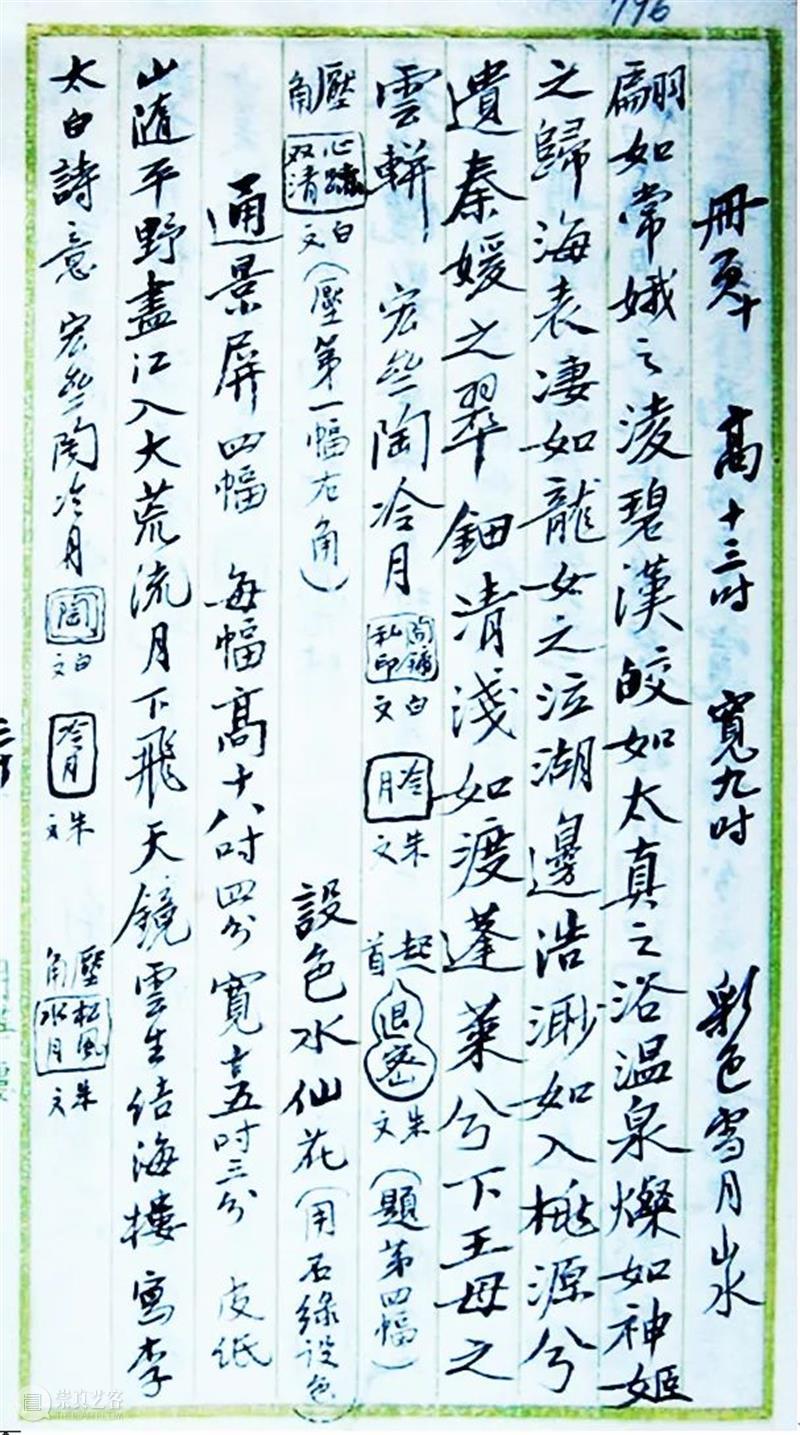 冊頁十 高十三吋 寬九吋 彩色雪月山水
翩如常娥之淩碧漢皎如太真之浴温泉燦如神姬
之歸海表凄如龍女之泣湖邊浩渺如入桃源兮
遺秦媛之翠鈿清淺如渡蓬萊兮下王母之
雲軿 宏斋陶冷月 陶鏞私印 白文 冷月 朱文 起首 退密 朱文 (題第四幅)
壓角 心蹟双清 白文 (壓第一幅右角) 設色水仙花 (用石綠設色)
通景屏四幅 每幅高十八吋四分 寬十五吋三分 皮纸
山隨平野盡江入大荒流月下飛天鏡雲生结海樓寫李
太白詩意 宏斋陶冷月 陶 白文 冷月 朱文 壓角 松風水月 朱文
崇真艺客